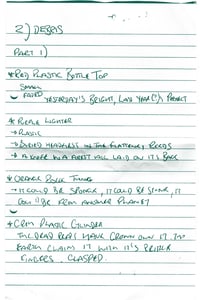 2) DEBRIS
PART 1)
* RED PLASTIC BOTTLE TOP
SMALL
FADED YESTERDAY'S BRIGHT, LAST YEAR(?)'S PROJECT
* PURPLE LIGHTER
→ PLASTIC
→ BURIED HEADFIRST IN THE FLATTENED REEDS
→ A TOWER IN A FOREST HILL LAID ON IT'S BACK
* ORANGE ROCK THING
→ IT COULD BE SPONGE, IT COULD BE STONE, IT
COULD BE FROM ANOTHER PLANET
* GREY PLASTIC CYLINDER
THE DEAD REEDS HAVE GROWN OVER IT. THE
EARTH CLAIMS IT WITH IT'S BRITTLE
FINGERS. CLASPED.